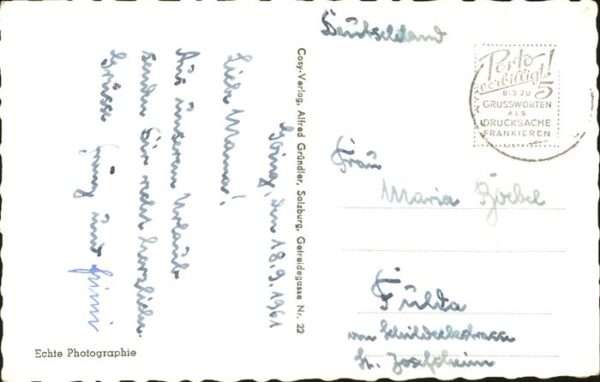 Going, den 18.9.1961
Liebe Mama!
Aus unserem Urlaub
senden Dir recht herzliche
Grüsse und
Echte Photographie
Cosy-Verlag, Alfred Gründler, Salzburg, Getreidegasse Nr. 22
Deutschland
Porto
verbilligt!
BIS ZU 5
GRUSSWORTEN
ALS
DRUCKSACHE
FRANKIEREN
Frau
Maria Goebel
Fulda
von Schildeckstrasse
St. Josefsheim